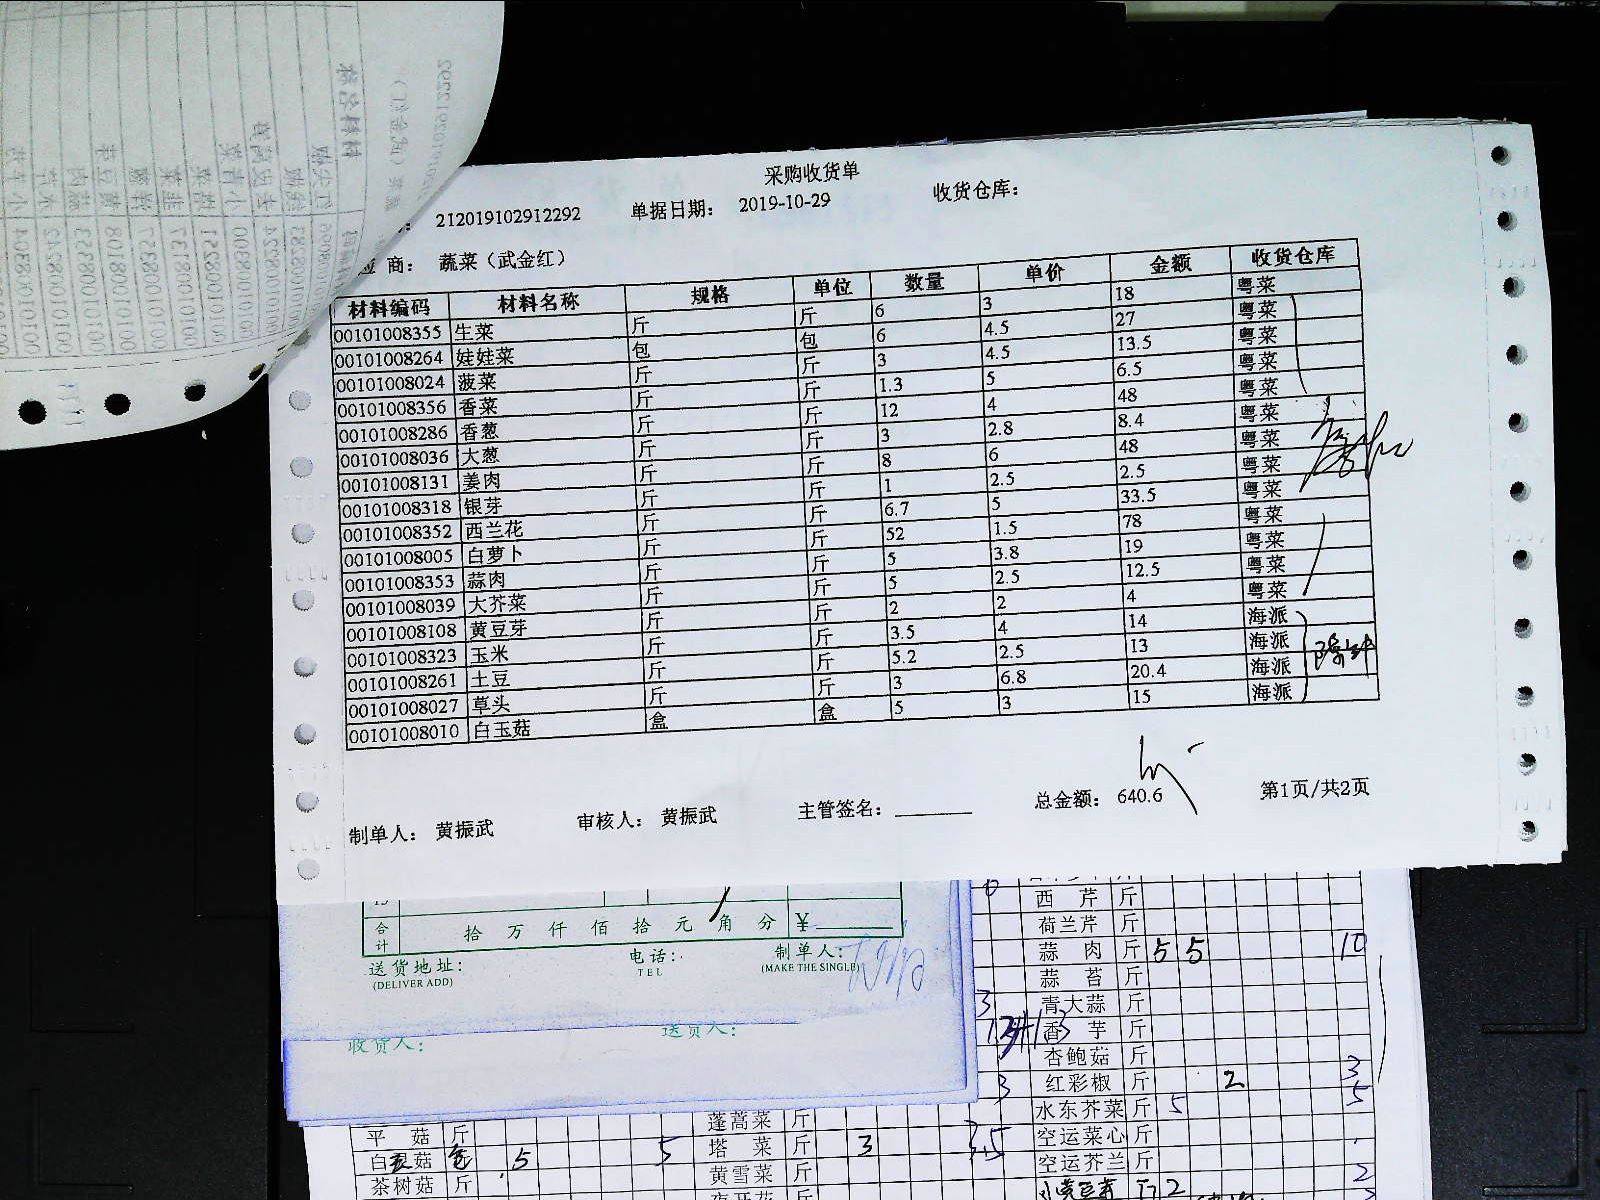 采购收货单
212019102912292 单据日期： 2019-10-29 收货仓库：
应 商： 蔬菜（武金红）
材料编码 材料名称 规格 单位 数量 单价 金额 收货仓库
00101008355 生菜 斤 斤 6 3 18 粤菜
00101008264 娃娃菜 包 包 6 4.5 27 粤菜
00101008024 菠菜 斤 斤 3 4.5 13.5 粤菜
00101008356 香菜 斤 斤 1.3 5 6.5 粤菜
00101008286 香葱 斤 斤 12 4 48 粤菜
00101008036 大葱 斤 斤 3 2.8 8.4 粤菜
00101008131 姜肉 斤 斤 8 6 48 粤菜
00101008318 银芽 斤 斤 1 2.5 2.5 粤菜
00101008352 西兰花 斤 斤 6.7 5 33.5 粤菜
00101008005 白萝卜 斤 斤 52 1.5 78 粤菜
00101008353 蒜肉 斤 斤 5 3.8 19 粤菜
00101008039 大芥菜 斤 斤 5 2.5 12.5 粤菜
00101008108 黄豆芽 斤 斤 2 2 4 粤菜
00101008323 玉米 斤 斤 3.5 4 14 海派
00101008261 土豆 斤 斤 5.2 2.5 13 海派
00101008027 草头 斤 斤 3 6.8 20.4 海派
00101008010 白玉菇 盒 盒 5 3 15 海派
制单人： 黄振武 审核人： 黄振武 主管签名： 总金额： 640.6 第1页/共2页
合计 拾 万 仟 佰 拾 元 角 分 ￥
送货地址： 电话： 制单人：
(DELIVER ADD) TEL (MAKE THE SINGLE)
收货人： 送货人：
西 芹 斤
荷兰芹 斤
蒜 肉 斤 5 5 10
蒜 苔 斤
青大蒜 斤
香 芋 斤
杏鲍菇 斤
红彩椒 斤 2 3
水东芥菜 斤 5 5
空运菜心 斤
空运芥兰 斤 2
蓬蒿菜 斤
塔 菜 斤 3 3.5
黄雪菜 斤
平 菇 斤
白玉菇 5 5
茶树菇 斤